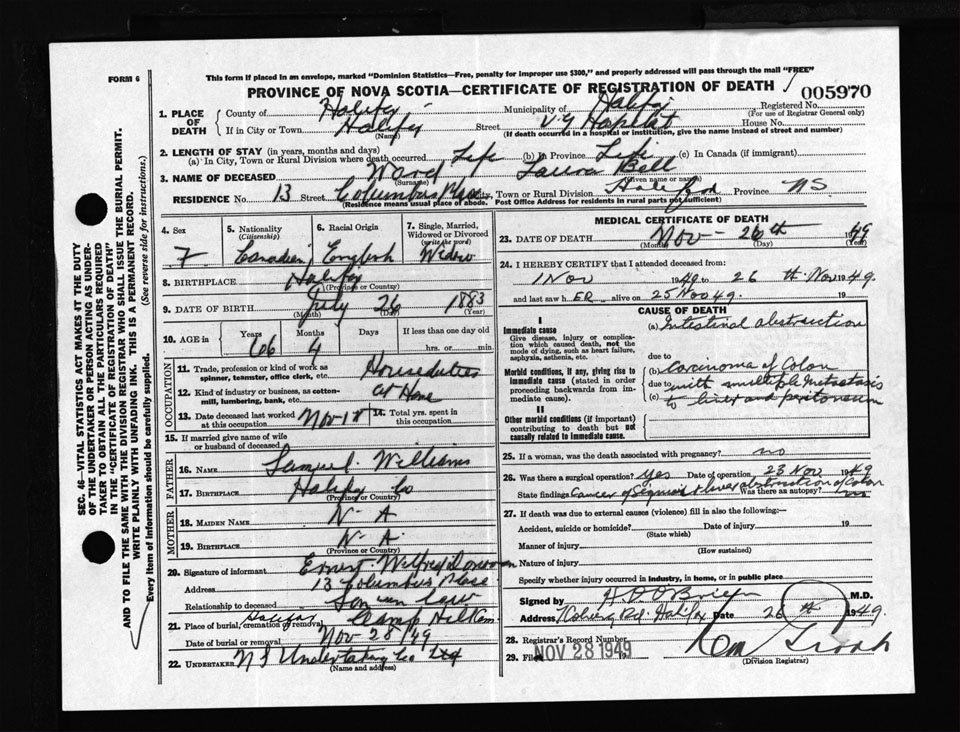 This form if placed in an envelope, marked "Dominion Statistics—Free, penalty for improper use $300," and properly addressed will pass through the mail "FREE"
FORM 6
PROVINCE OF NOVA SCOTIA—CERTIFICATE OF REGISTRATION OF DEATH
005970
1. PLACE OF DEATH
County of Halifax Municipality of Halifax Registered No.
(For use of Registrar General only)
If in City or Town Halifax Street V.G Hospital House No.
(Name) (If death occurred in a hospital or institution, give the name instead of street and number)
2. LENGTH OF STAY (in years, months and days)
(a) In City, Town or Rural Division where death occurred Life (b) In Province Life (c) In Canada (if immigrant)
3. NAME OF DECEASED Ward Laura Bell
(Surname) (Given name or names)
RESIDENCE No. 13 Street Columbus Place City, Town or Rural Division Halifax Province NS
(Residence means usual place of abode. Post Office Address for residents in rural parts not sufficient)
4. Sex
F
5. Nationality
(Citizenship)
Canadian
6. Racial Origin
English
7. Single, Married, Widowed or Divorced
(write the word)
Widow
8. BIRTHPLACE Halifax
(Province or Country)
9. DATE OF BIRTH July 26 1883
(Month) (Day) (Year)
10. AGE in Years Months Days If less than one day old
66 4 hrs. or min.
OCCUPATION
11. Trade, profession or kind of work as spinner, teamster, office clerk, etc. Houseduties
12. Kind of industry or business, as cotton-mill, lumbering, bank, etc. at Home
13. Date deceased last worked at this occupation Nov 1st
14. Total yrs. spent in this occupation
15. If married give name of wife or husband of deceased
FATHER
16. NAME Samuel Williams
17. BIRTHPLACE Halifax Co
(Province or Country)
MOTHER
18. MAIDEN NAME N. A
19. BIRTHPLACE N. A.
(Province or Country)
20. Signature of informant Ernest Wilfred Donovan
Address 13 Columbus Place
Relationship to deceased Son in law
21. Place of burial, cremation or removal Halifax Camp Hill Cem
Date of burial or removal Nov 28/49
22. UNDERTAKER N S Undertaking Co Ltd
(Name and address)
MEDICAL CERTIFICATE OF DEATH
23. DATE OF DEATH Nov - 26th 1949
(Month) (Day) (Year)
24. I HEREBY CERTIFY that I attended deceased from:
1 Nov 1949 to 26 th Nov 1949.
and last saw h ER alive on 25 Nov 49. 19
CAUSE OF DEATH
I
Immediate cause
Give disease, injury or complication which caused death, not the mode of dying, such as heart failure, asphyxia, asthenia, etc.
(a) Intestinal obstruction
due to
Morbid conditions, if any, giving rise to immediate cause (stated in order proceeding backwards from immediate cause).
(b) Carcinoma of Colon
due to with multiple metastasis
(c) to liver and peritoneum
II
Other morbid conditions (if important) contributing to death but not causally related to immediate cause.
25. If a woman, was the death associated with pregnancy? no
26. Was there a surgical operation? yes Date of operation 23 Nov 1949
State findings Cancer of Sigmoid & liver obstruction of Colon Was there an autopsy? no
27. If death was due to external causes (violence) fill in also the following:—
Accident, suicide or homicide? Date of injury 19
(State which)
Manner of injury
(How sustained)
Nature of injury
Specify whether injury occurred in industry, in home, or in public place
Signed by O'Brien M.D.
Address Halifax Date 26 th 1949.
28. Registrar's Record Number
29. Filed NOV 28 1949
(Division Registrar)
SEC. 46—VITAL STATISTICS ACT MAKES IT THE DUTY
OF THE UNDERTAKER OR PERSON ACTING AS UNDER-
TAKER TO OBTAIN ALL THE PARTICULARS REQUIRED
IN THE "CERTIFICATE OF REGISTRATION OF DEATH"
AND TO FILE THE SAME WITH THE DIVISION REGISTRAR WHO SHALL ISSUE THE BURIAL PERMIT.
WRITE PLAINLY WITH UNFADING INK. THIS IS A PERMANENT RECORD.
Every item of information should be carefully supplied. (See reverse side for instructions.)